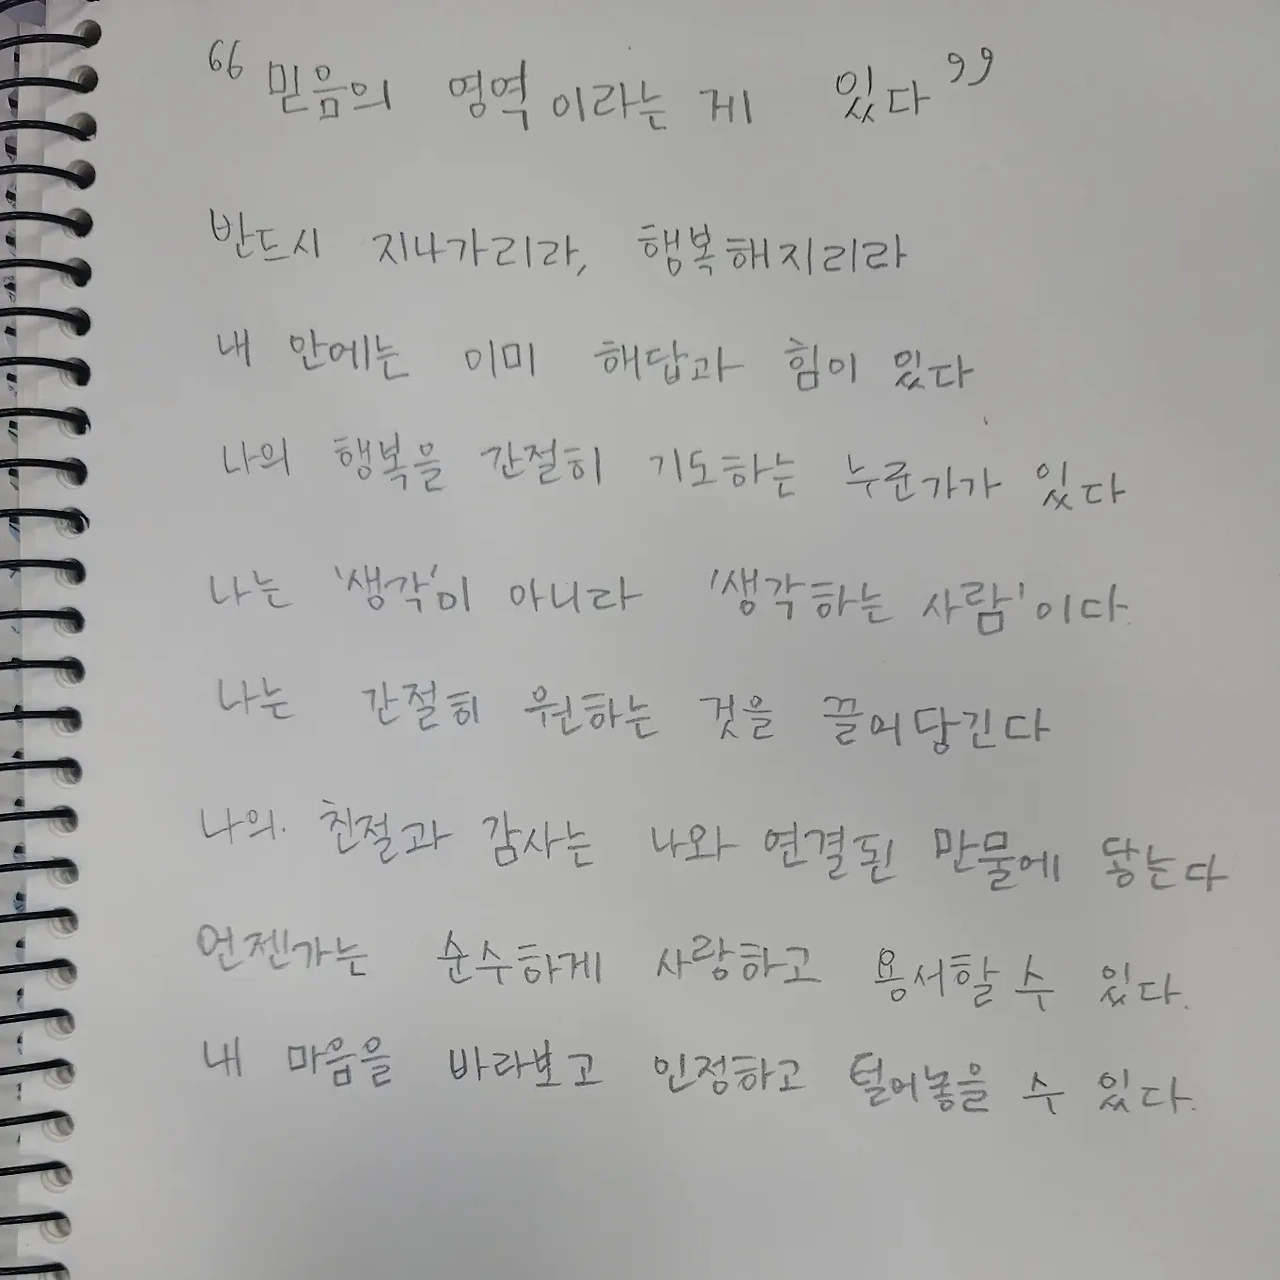 “믿음의 영역이라는 게 있다”
반드시 지나가리라, 행복해지리라
내 안에는 이미 해답과 힘이 있다
나의 행복을 간절히 기도하는 누군가가 있다
나는 '생각'이 아니라 '생각하는 사람'이다.
나는 간절히 원하는 것을 끌어당긴다
나의. 친절과 감사는 나와 연결된 만물에 닿는다
언젠가는 순수하게 사랑하고 용서할 수 있다.
내 마음을 바라보고 인정하고 털어놓을 수 있다.